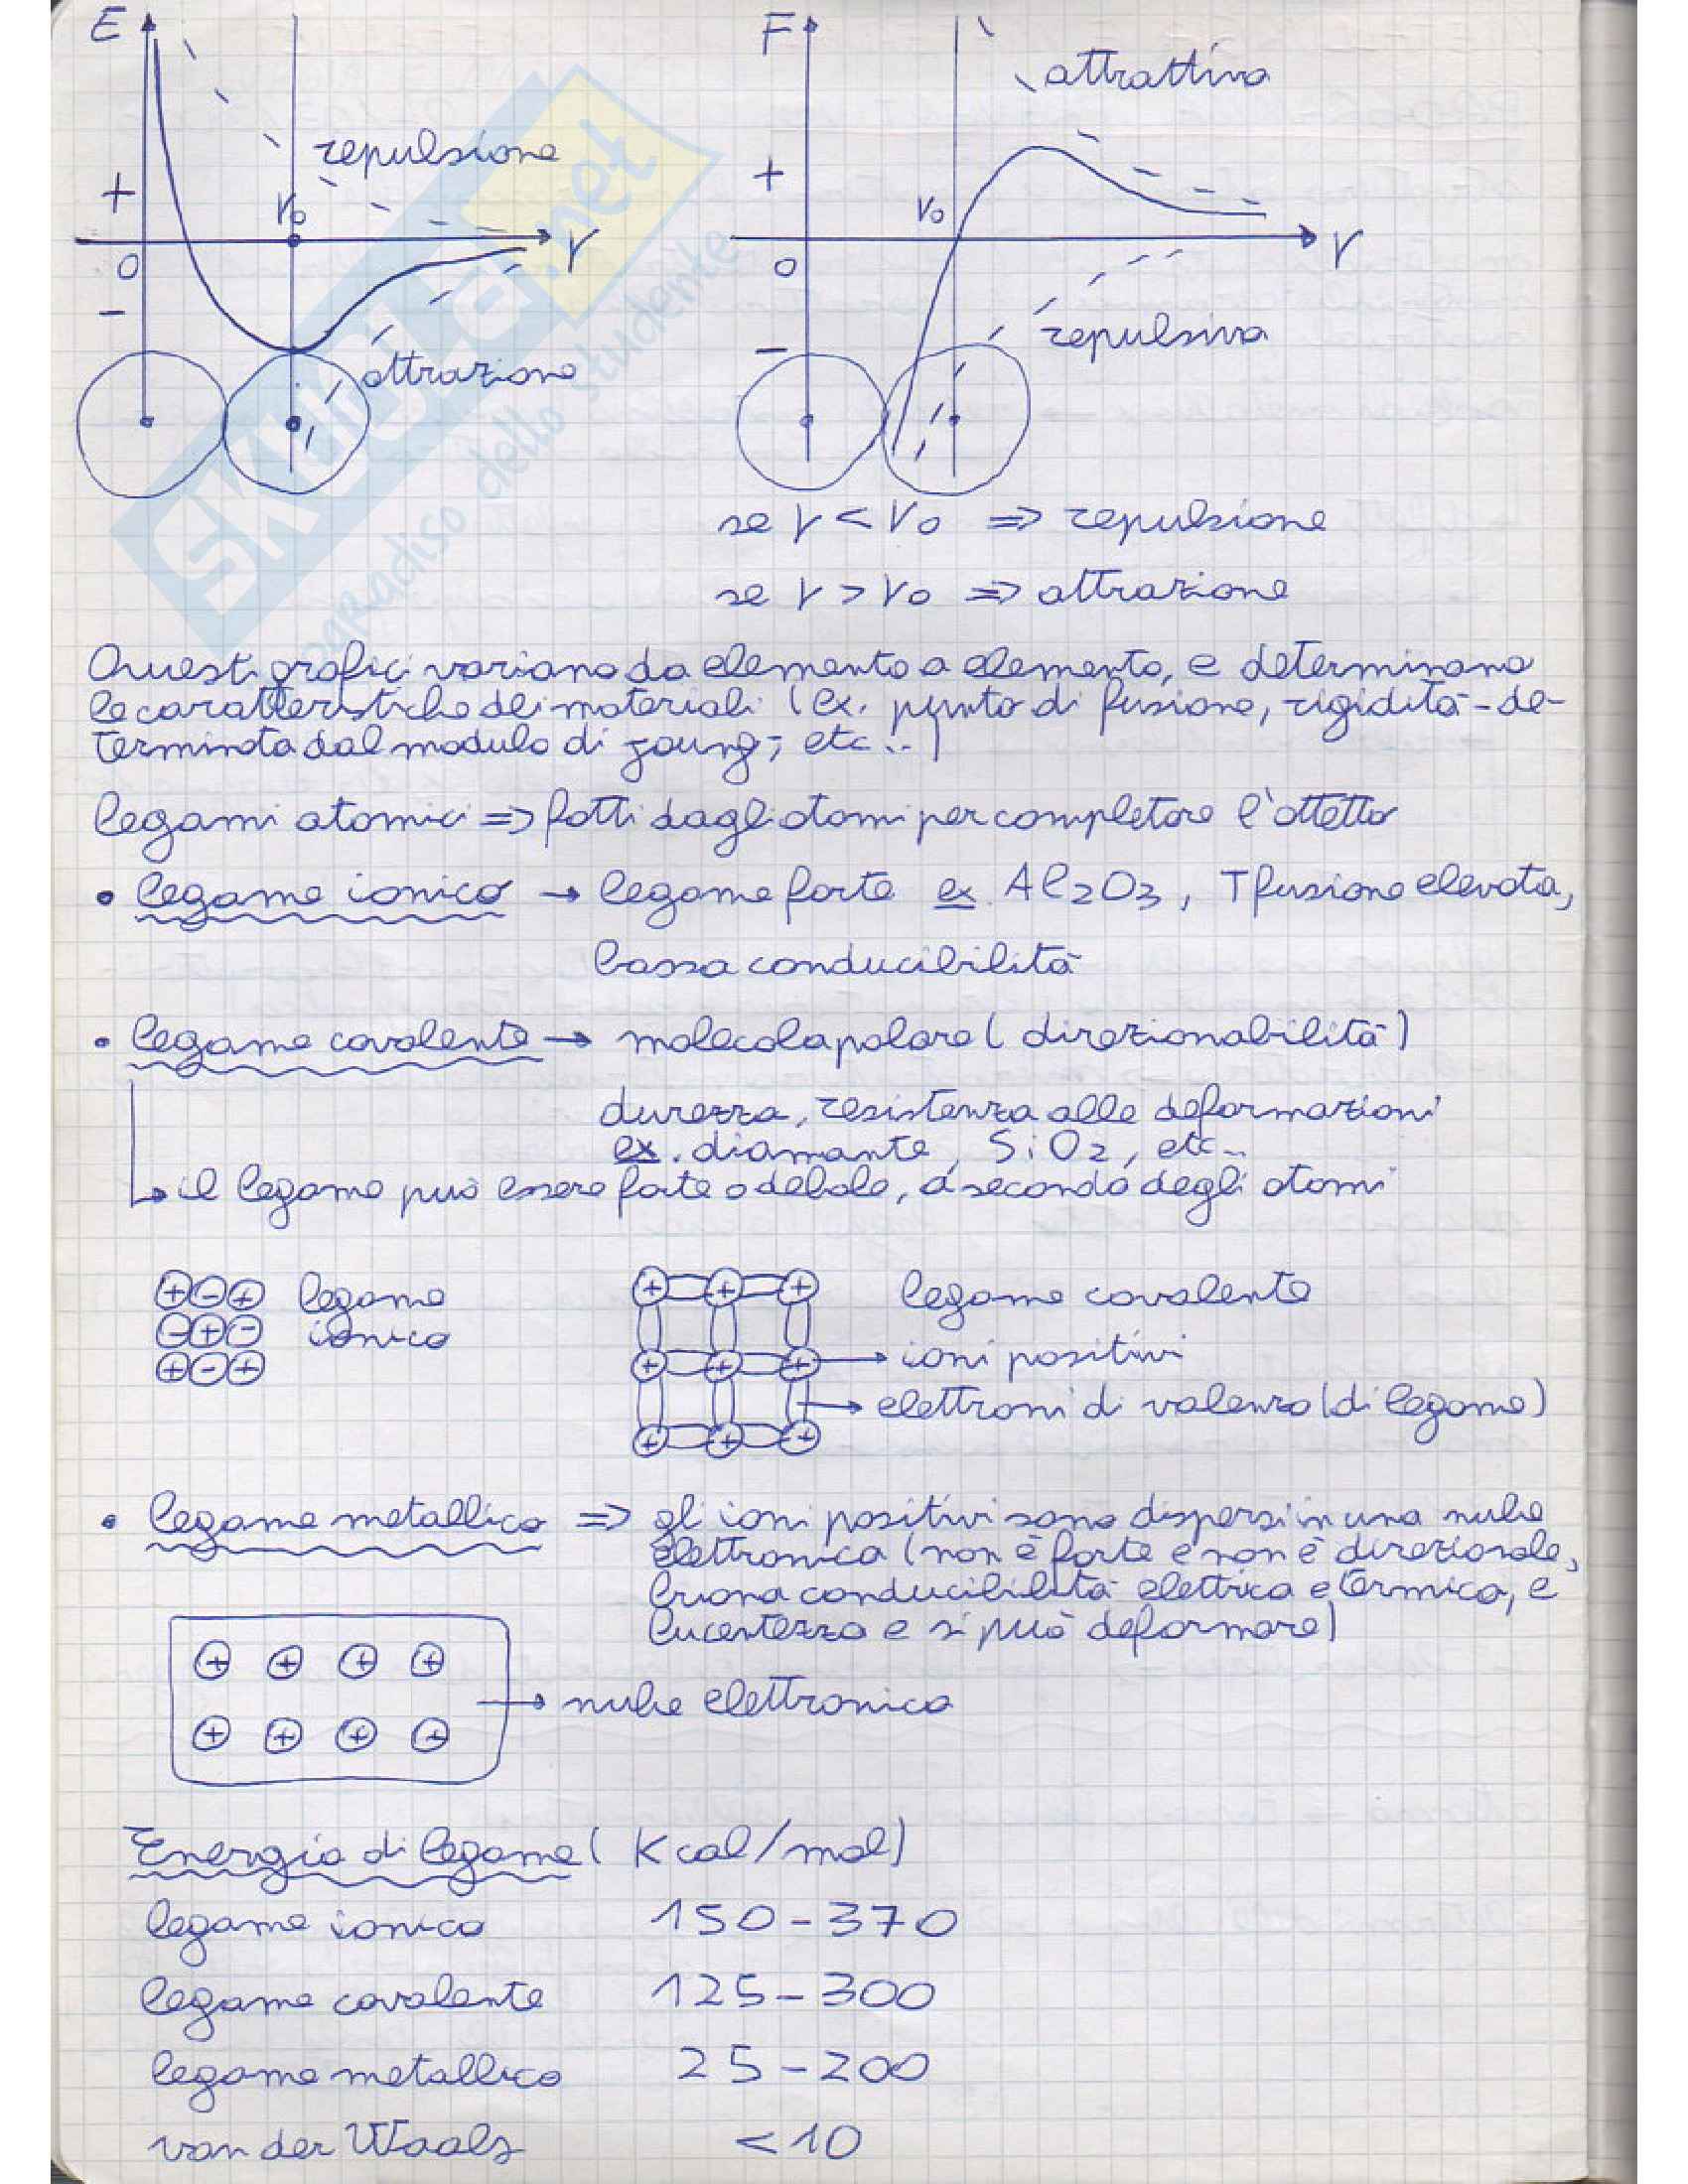 E
F
attrattiva
repulsione
+
+
r₀
r₀
r
r
0
0
-
-
repulsiva
attrazione
SKUOLA.net
paradiso dello studente
se r < r₀ => repulsione
se r > r₀ => attrazione
Questi grafici variano da elemento a elemento, e determinano
le caratteristiche dei materiali (ex. punto di fusione, rigidità - de-
terminata dal modulo di young-, etc..)
legami atomici => fatti dagli atomi per completare l'ottetto
• legame ionico → legame forte ex. Al₂O₃, T fusione elevata,
bassa conducibilità
• legame covalente → molecola polare (direzionabilità)
durezza, resistenza alle deformazioni
ex. diamante, SiO₂, etc..
↳ il legame può essere forte o debole, a seconda degli atomi
+ - + legame
- + - ionico
+ - +
+ + + legame covalente
+ + + → ioni positivi
→ elettroni di valenza (di legame)
+ + +
• legame metallico => gli ioni positivi sono dispersi in una nube
elettronica (non è forte e non è direzionale,
buona conducibilità elettrica e termica, e
lucentezza e si può deformare)
+ + + +
→ nube elettronica
+ + + +
Energia di legame (Kcal/mol)
legame ionico 150-370
legame covalente 125-300
legame metallico 25-200
van der Waals <10